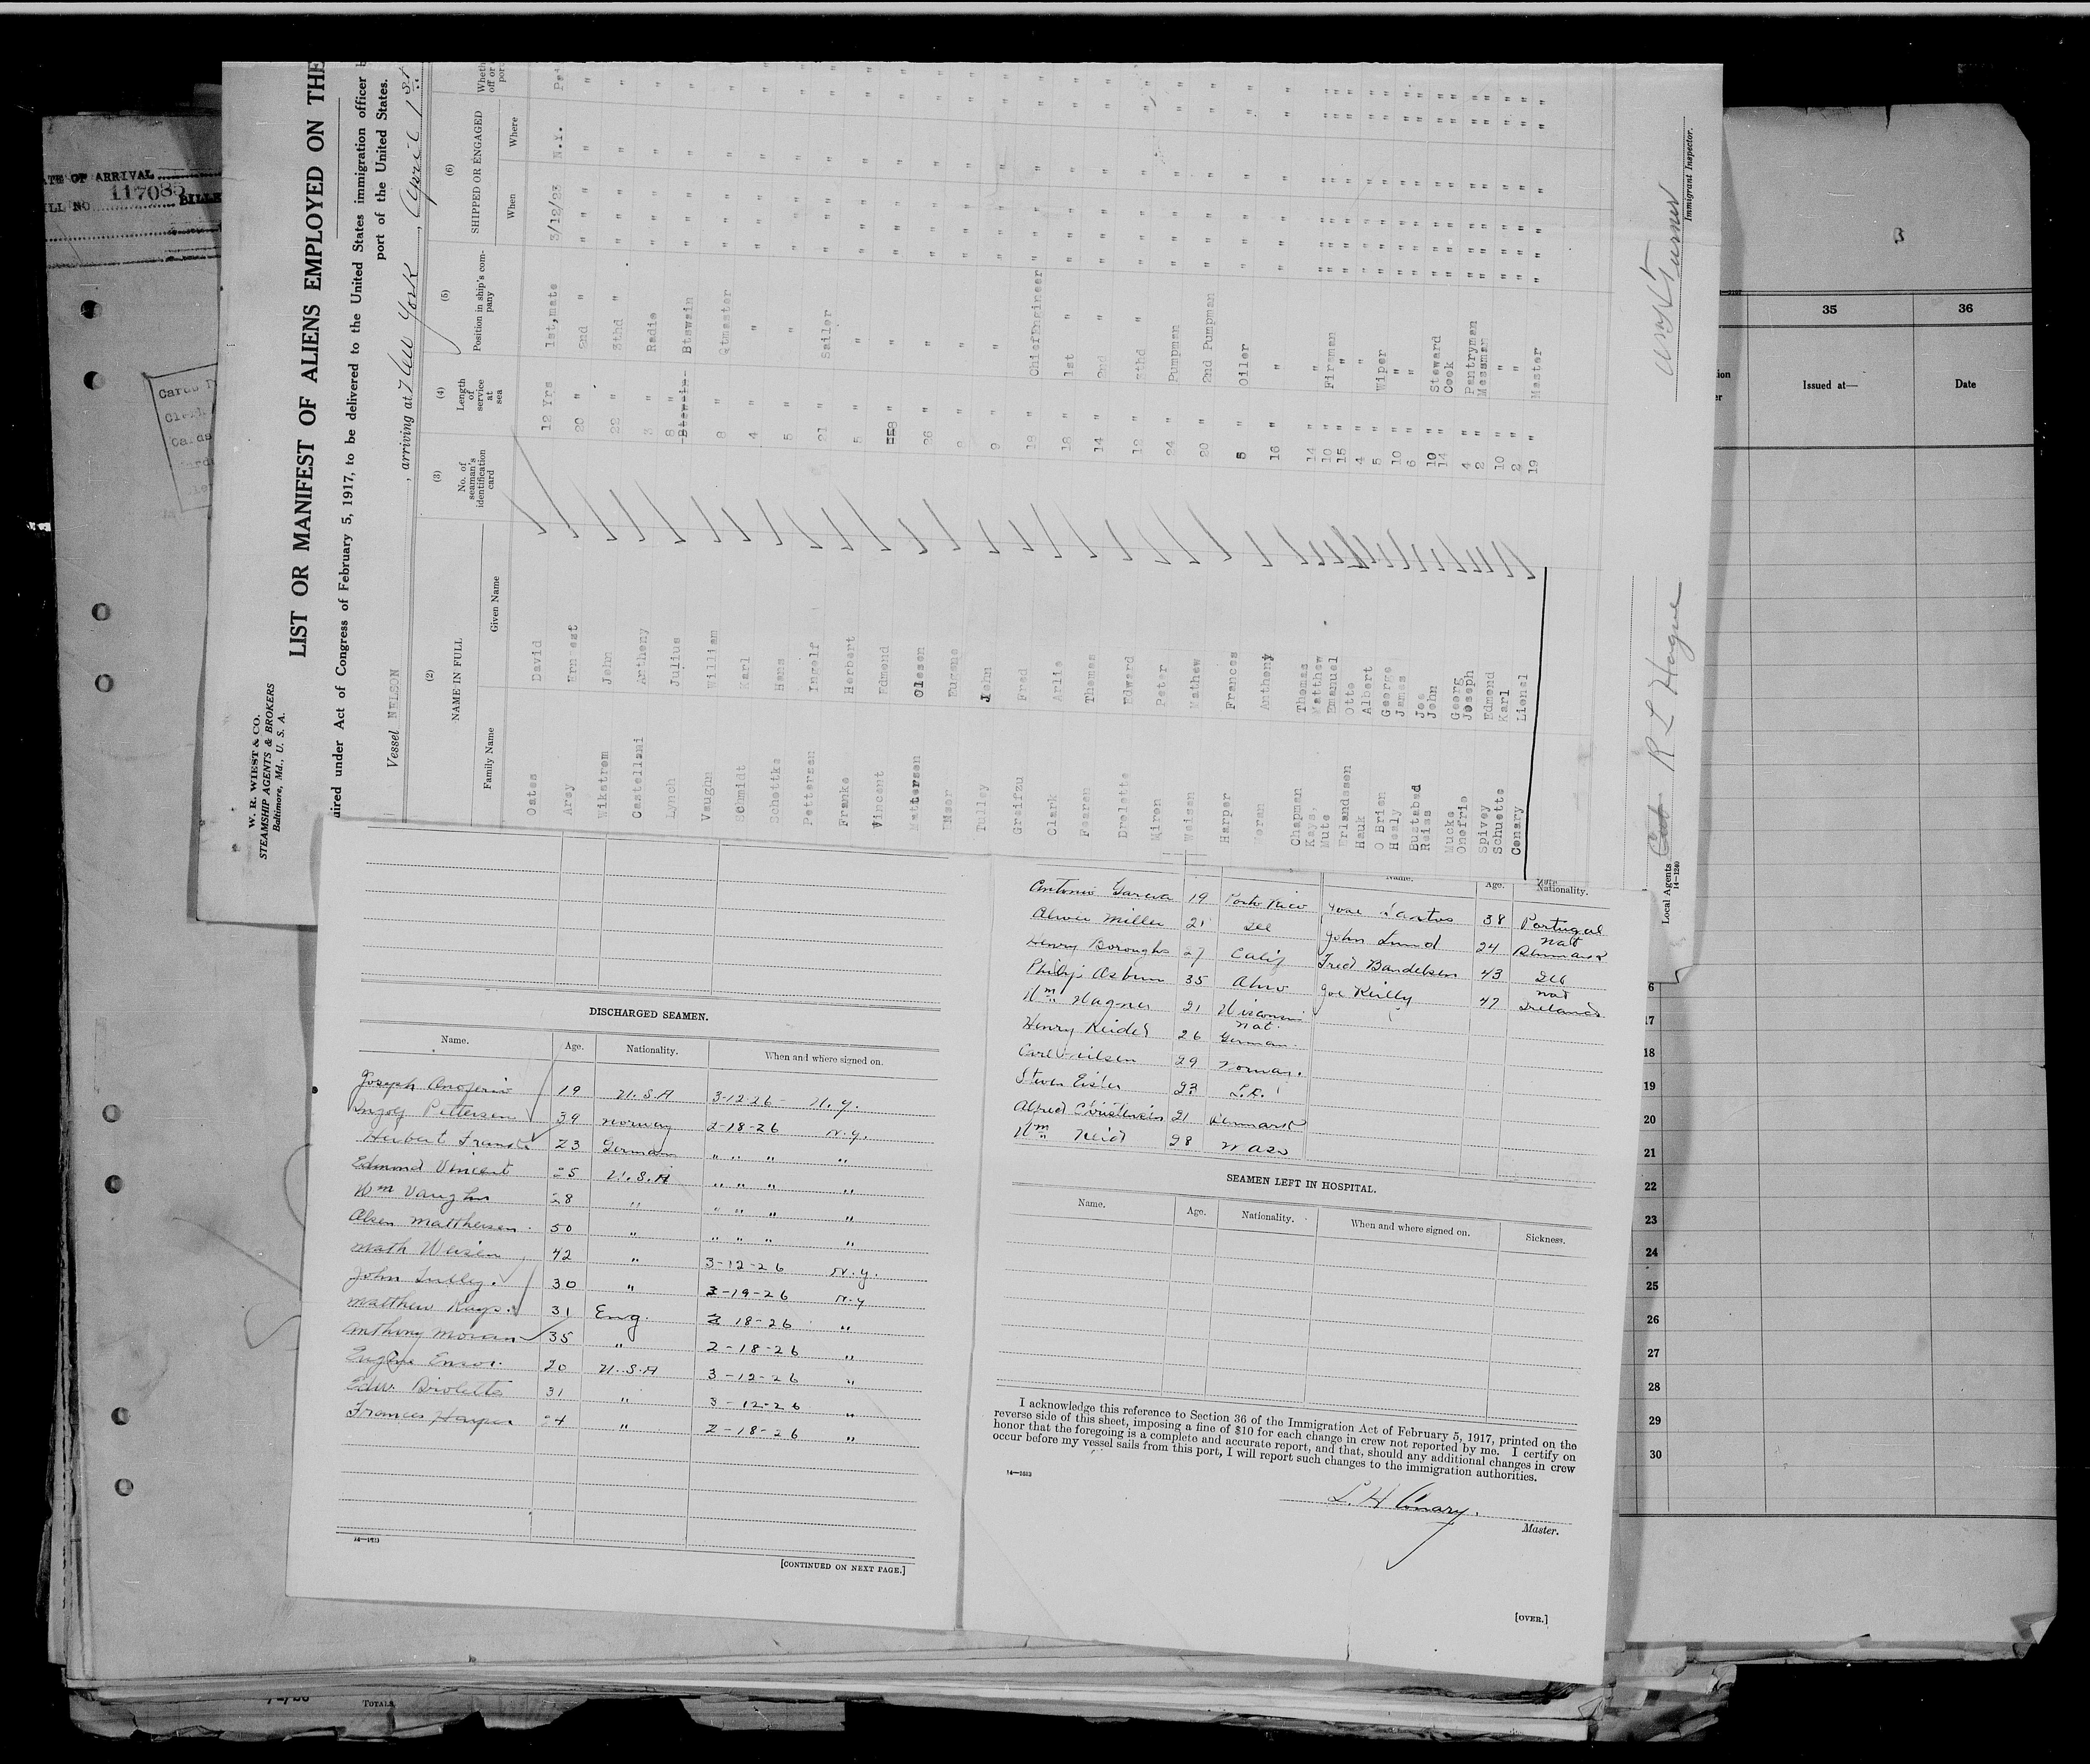 ATE OF ARRIVAL
ILL NO 117085 BILLE
W. R. WIEST & CO.
STEAMSHIP AGENTS & BROKERS
Baltimore, Md., U. S. A.
LIST OR MANIFEST OF ALIENS EMPLOYED ON THE
uired under Act of Congress of February 5, 1917, to be delivered to the United States immigration officer
port of the United States.
Vessel NELSON , arriving at New York , April 1st
(2) (3) (4) (5) (6)
NAME IN FULL No. of seaman's identification card Length of service at sea Position in ship's company SHIPPED OR ENGAGED
Family Name Given Name When Where
Oates David 12 Yrs 1st,mate 3/12/23 N.Y.
Arey Ernest 20 " 2nd " " " " "
Wikstrom John 22 " 3thd " " " " "
Castellani Antheny 3 " Radio " " " "
Lynch Julius 8 " Btswain " " " "
Vaughn William 8 " Qtmaster " " " "
Schmidt Karl 4 " " " " " "
Schottke Hans 5 " " " " " "
Pettersen Ingolf 21 " Sailer " " " "
Franke Herbert 5 " " " " " "
Vincent Edmond 8 " " " " " "
Mattersen Olesen 26 " " " " " "
Eugene " " " " " "
Tulley John 9 " " " " " "
Greifzu Fred 19 " ChiefEngineer " " " "
Clark Arlie 18 " 1st " " " " "
Fearen Thomas 14 " 2nd " " " " "
Drolette Edward 12 " 3thd " " " " "
Miron Peter 24 " Pumpman " " " "
Weisen Mathew 20 " 2nd Pumpman " " " "
Harper Frances 5 " Oiler " " " "
Moran Antheny 16 " " " " " "
Chapman Thomas 14 " " " " " "
Kays, Matthew 10 " Fireman " " " "
Mute Emanuel 15 " " " " " "
Erlandssen Otto 4 " " " " " "
Hauk Albert 5 " Wiper " " " "
O Brien George 10 " " " " " "
Healy James 6 " " " " " "
Bustabad Joe 10 " Steward " " " "
Reiss John 14 " Cook " " " "
Mucke Georg 4 " Pantryman " " " "
Onofrio Joseph 2 " Messman " " " "
Spivey Edmond 10 " " " " " "
Schuette Karl 2 " " " " " "
Conary Lionel 19 " Master " " " "
Local Agents R L Hague
14-1240
Immigrant Inspector.
35 36
Issued at— Date
DISCHARGED SEAMEN.
Name. Age. Nationality. When and where signed on.
Joseph Onoferio 19 U.S.A 3-12-26 - N.Y.
Ingolf Pettersen 39 Norway 2-18-26 N.Y.
Herbert Franke 23 German " " " "
Edmond Vincent 25 U.S.A " " " "
Wm Vaughn 28 " " " " "
Olsen Matthersen 50 " " " " "
Math Weisen 42 " 3-12-26 N.Y.
John Tulley. 30 " 3-19-26 N.Y
Matthew Kays. 31 Eng. 2 18-26 "
Anthony Moran 35 " 2-18-26 "
Eugene Ensor. 20 U.S.A 3-12-26 "
Edw. Drolette 31 " 3-12-26 "
Frances Harper 24 " 2-18-26 "
[CONTINUED ON NEXT PAGE.]
Name. Age. Nationality.
Antonio Garcia 19 Porto Rico Jose Santos 38 Portugal
Miller 21 John Lund 24 Nat Denmark
Henry Boroughs 27 Calif Fred Bandelsen 43
Philip Osburn 35 Ohio Joe Reilly 47 Nat Ireland
Wm Wagner 21 Wisconsin
Henry Reidel 26 Nat. German
Carl Neilsen 29 Norway.
23
Alfred Christensen 21 Denmark
Wm Reid 28 Wash
SEAMEN LEFT IN HOSPITAL.
Name. Age. Nationality. When and where signed on. Sickness.
I acknowledge this reference to Section 36 of the Immigration Act of February 5, 1917, printed on the
reverse side of this sheet, imposing a fine of $10 for each change in crew not reported by me. I certify on
honor that the foregoing is a complete and accurate report, and that, should any additional changes in crew
occur before my vessel sails from this port, I will report such changes to the immigration authorities.
L. H Conary.
Master.
[OVER.]
6
17
18
19
20
21
22
23
24
25
26
27
28
29
30
TOTALS